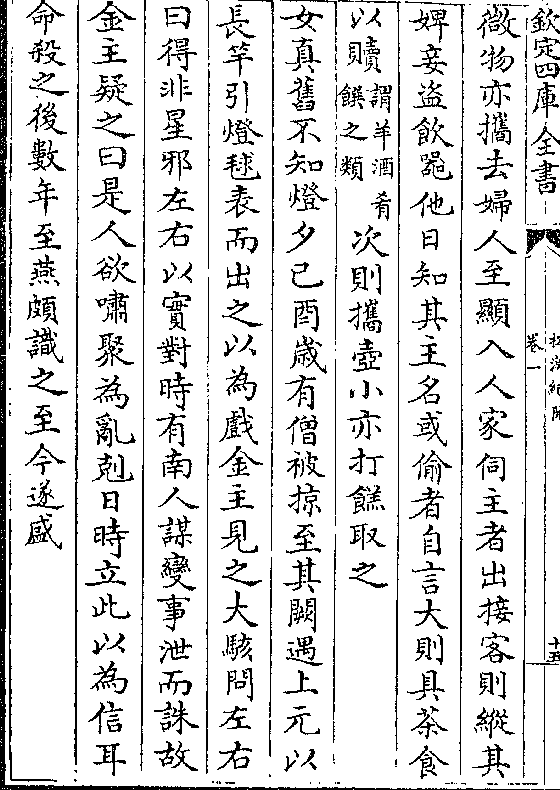 欽定四庫全書
松漠紀聞
卷一
十五
微物亦攜去婦人至顯入人家伺主者出接客則縱其
婢妾盗飲噐他日知其主名或偷者自言大則具茶食
以贖謂羊酒肴饌之類次則攜壺小亦打餻取之
女真舊不知燈夕已酉嵗有僧被掠至其闕遇上元以
長竿引燈毬表而出之以為戲金主見之大駭問左右
曰得非星邪左右以實對時有南人謀變事泄而誅故
金主疑之曰是人欲嘯聚為亂剋日時立此以為信耳
命殺之後數年至燕頗識之至今遂盛